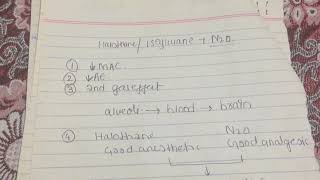 Halothane/ Isoflurane + N2O
① ↓ MAC
② ↓ AC
③ 2nd gas effect
alveoli → blood → brain
④ Halothane N2O
Good anesthetic Good analgesic